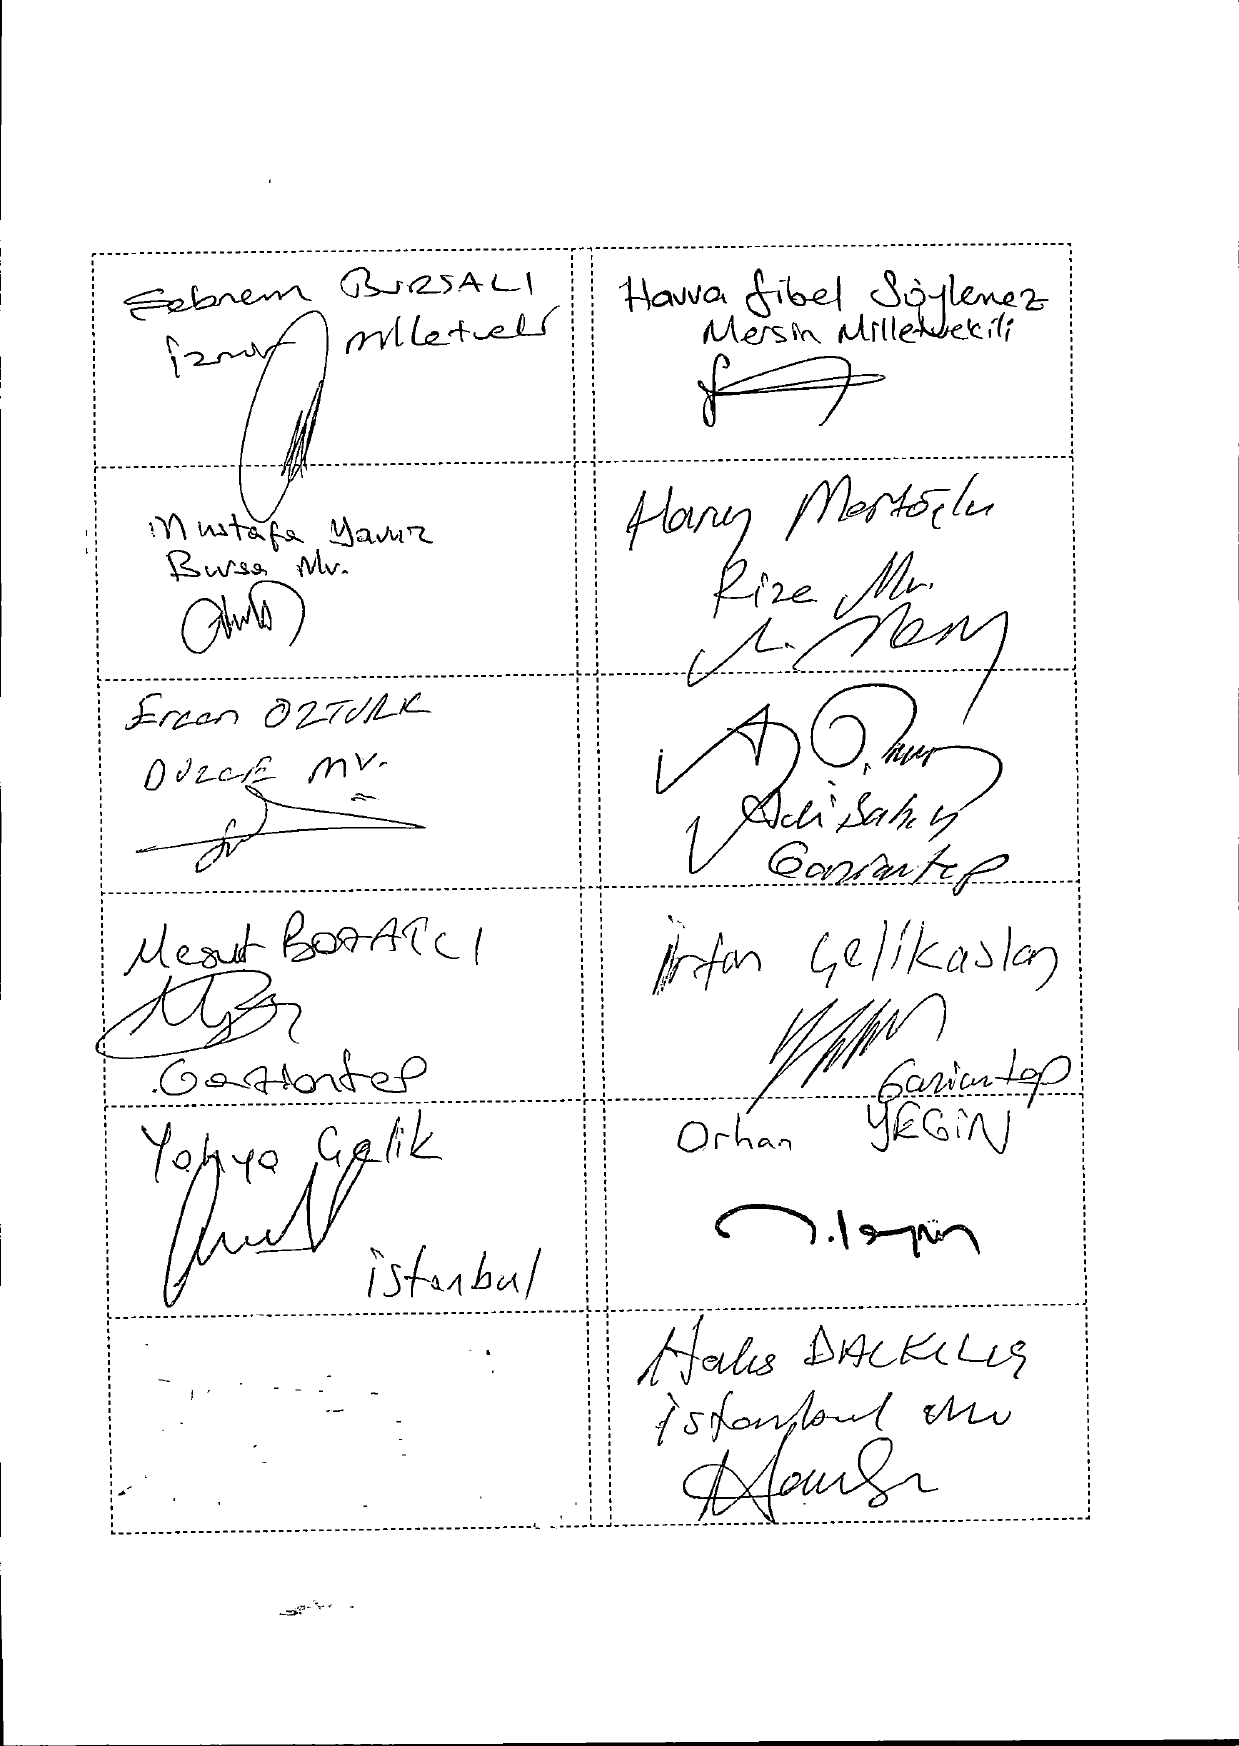 Şebnem BURSALI
İzmir Milletvekili
Havva Sibel Söylemez
Mersin Milletvekili
Mustafa Yavuz
Bursa Mv.
Harun Mertoğlu
Rize Mv.
Ercan ÖZTÜRK
DÜZCE MV.
Gaziantep
Mesut BOZATLI
Gaziantep
İrfan Çelikaslan
Gaziantep
Yahya Çelik
İstanbul
Orhan YEGİN
Halis DALKILIÇ
İstanbul Mv